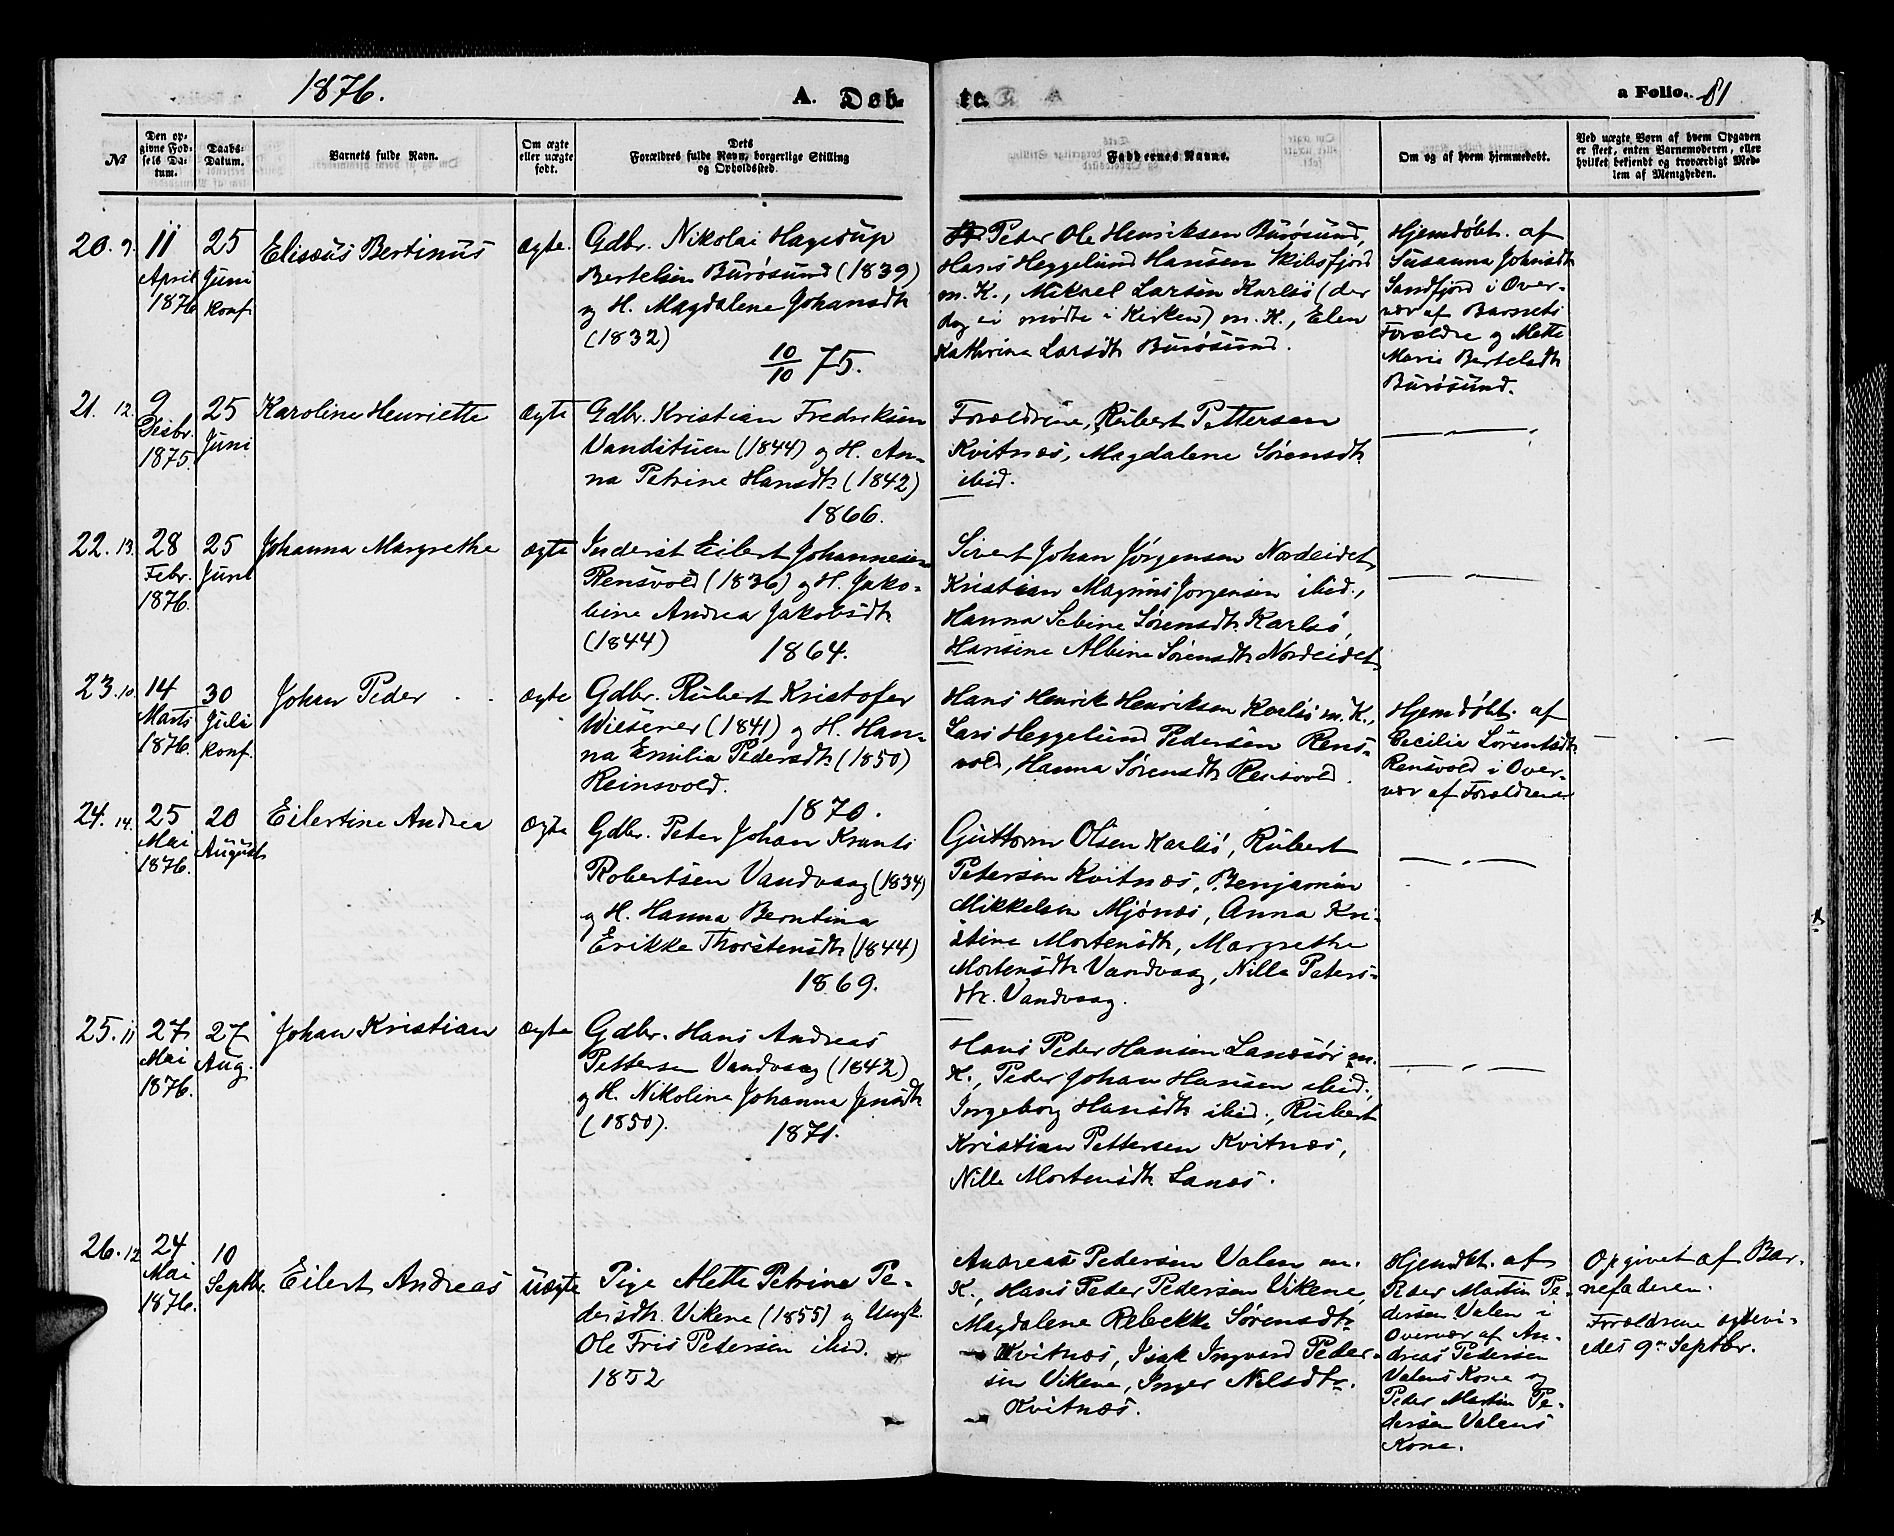 1876.
A. Døb-
te.
a Folio. 81
№
Den op-
givne Fød-
sels Da-
tum.
Daabs-
Datum.
Barnets fulde Navn.
Om ægte
eller uægte
født.
Dets
Forældres fulde Navn, borgerlige Stilling
og Opholdssted.
Faddernes Navne.
Om og af hvem hjemmedøbt.
Ved uægte Børn af hvem Opgaven
er skeet, enten Barnemoderen, eller
hvilket bekjendt og troværdigt Med-
lem af Menigheden.
20. 9.
11
April
1876
25
Juni
konf.
Elisæus Bertinus
ægte.
Gdbr. Nikolai Hagerup
Bertelsen Burøsund (1839)
og H. Magdalene Johansdtr
(1832)
10/10 75.
Peter Ole Henriksen Burøsund,
Hans Heggelund Hansen Skibsfjord
m. K., Mikael Larsen Karlsö (der
dog ei mødte i Kirken) m. K., Elen
Kathrine Larsdtr Burøsund.
Hjemdøbt. af
Susanna Johnsdtr
Sandfjord i Over-
vær af Barnets
Forældre og Mette
Marie Bertelsdtr
Burøsund.
21. 12.
9
Desbr.
1875.
25
Juni
Karoline Henriette
ægte
Gdbr. Kristian Fredriksen
Vandstuen (1844) og H. An-
na Petrine Hansdtr (1842)
1866.
Forældrene, Rubert Pettersen
Kvitnæs, Magdalene Sørensdtr
ibid.
— „ —
22. 13.
28
Febr.
1876.
25
Juni
Johanna Margrethe
ægte
Inderst Eilert Johannesen
Rensvold (1836) og H. Jako-
bine Andrea Jakobsdtr
(1844)
1864.
Sivert Johan Jørgensen Nordeidet,
Kristian Magnus Jørgensen ibid.,
Hanna Sebine Sørensdtr Karlsö,
Hansine Albine Sørensdtr Nordeidet.
— „ —
23. 10.
14
Marts
1876.
30
Juli
konf.
Johan Peder
ægte
Gdbr. Rubert Kristofer
Wisener (1841) og H. Han-
na Emilia Pedersdtr (1850)
Reinsvold.
1870.
Hans Henrik Henriksen Karlsö m. K.,
Lars Heggelund Pedersen Rens-
vold, Hanna Sørensdtr Rensvold.
Hjemdøbt. af
Cecilie Sørensdtr
Rensvold i Over-
vær af Forældrene
— . —
24. 14.
25
Mai
1876.
20
August
Eilertine Andrea
ægte
Gdbr. Peter Johan Krants
Robertsen Vandvaag (1834)
og H. Hanna Berntina
Erikke Thorstensdtr (1844)
1869.
Guttorm Olsen Karlsö, Rubert
Petersen Kvitnæs, Benjamin
Mikkelsen Mjönæs, Anna Kri-
stine Mortensdtr, Margrethe
Mortensdtr Vandvaag, Nille Peters-
dtr. Vandvaag.
— „ —
25. 11
27
Mai
1876.
27
Aug.
Johan Kristian
ægte
Gdbr. Hans Andreas
Pettersen Vandvaag (1842)
og H. Nikoline Johanna Jensdtr
(1850).
1871.
Hans Peder Hansen Lanesör m.
K., Peder Johan Hansen ibid.,
Ingeborg Hansdtr ibid., Rubert
Kristian Pettersen Kvitnæs,
Nille Mortensdtr Lanes.
— „ —
26. 12
24
Mai
1876.
10
Septbr.
Eilert Andreas
uægte
Pige Mette Petrine Pe-
dersdtr. Vikene (1855) og Ungk.
Ole Fris Pedersen ibid.
1852
Andreas Pedersen Valen m.
K., Hans Peder Pedersen Vikene,
Magdalene Rebekke Sørensdtr
Kvitnæs, Isak Ingvard Peder-
sen Vikene, Inger Nilsdtr.
Kvitnæs.
Hjemdbt. af
Peder Martin Pe-
dersen Valen i
Overvær af An-
dreas Pedersen
Valens Kone og
Peder Martin Pe-
dersen Valens
Kone.
Opgivet af Bar-
nefaderen.
Forældrene ægtevi-
edes 9de Septbr.